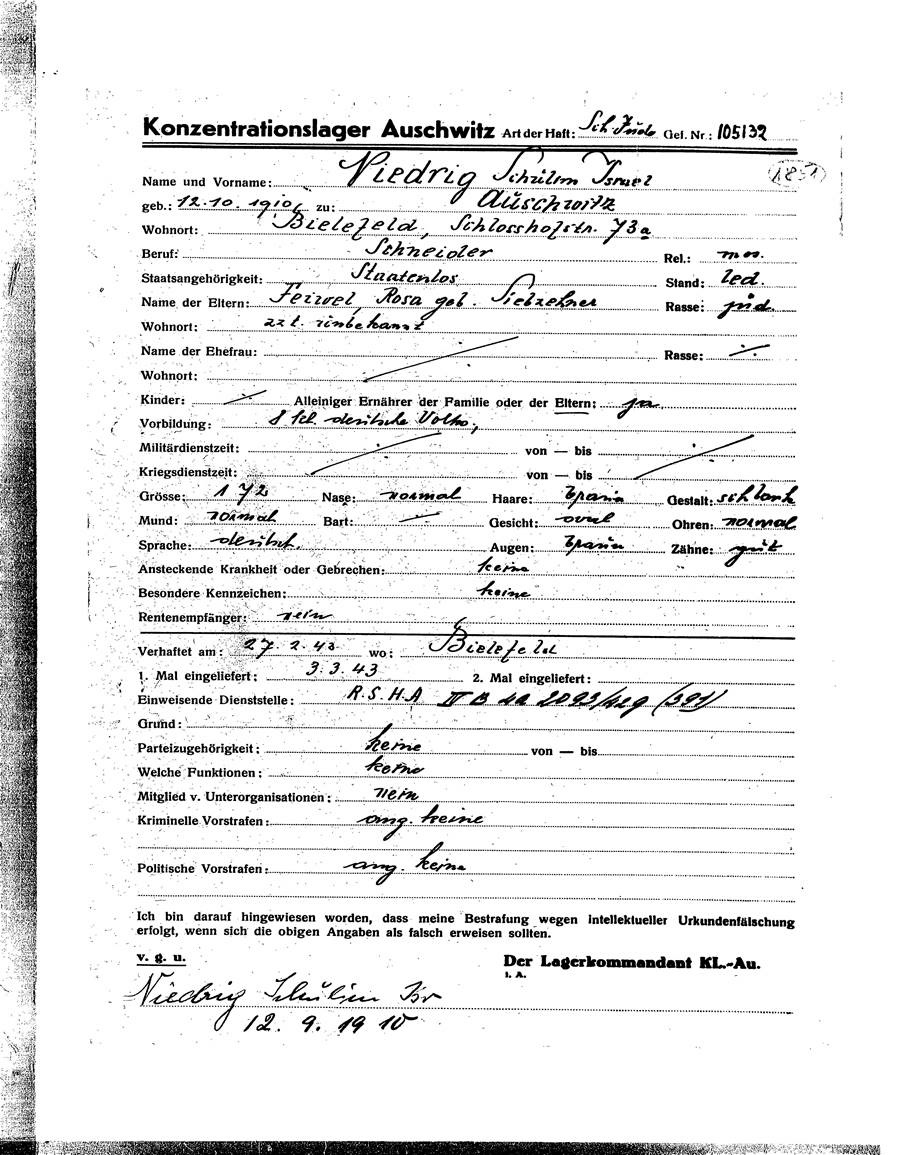 Konzentrationslager Auschwitz Art der Haft: Sch. Jude Gef. Nr.: 105132
Name und Vorname: Niedrig Schulim Israel
geb.: 12.10.1910, zu: Auschwitz
Wohnort: Bielefeld, Schlosshofstr. 73a
Beruf: Schneider Rel.: mos.
Staatsangehörigkeit: Staatenlos Stand: led.
Name der Eltern: Feiwel, Rosa geb. Siebzehner Rasse: jüd.
Wohnort: zzt. unbekannt
Name der Ehefrau: Rasse: ./.
Wohnort:
Kinder: ./. Alleiniger Ernährer der Familie oder der Eltern: ja
Vorbildung: 8 kl. deutsche Volks,
Militärdienstzeit: von — bis
Kriegsdienstzeit: von — bis
Grösse: 172 Nase: normal Haare: braun Gestalt: schlank
Mund: normal Bart: ./. Gesicht: oval Ohren: normal
Sprache: deutsch. Augen: braun Zähne: gut
Ansteckende Krankheit oder Gebrechen: keine
Besondere Kennzeichen: keine
Rentenempfänger: nein
Verhaftet am: 27.2.43 wo: Bielefeld
1. Mal eingeliefert: 3.3.43 2. Mal eingeliefert:
Einweisende Dienststelle: R.S.H.A 2093/42g (391)
Grund:
Parteizugehörigkeit: keine von — bis
Welche Funktionen: keine
Mitglied v. Unterorganisationen: nein
Kriminelle Vorstrafen: ang. keine
Politische Vorstrafen: ang. keine
Ich bin darauf hingewiesen worden, dass meine Bestrafung wegen intellektueller Urkundenfälschung
erfolgt, wenn sich die obigen Angaben als falsch erweisen sollten.
v. g. u. Der Lagerkommandant KL.-Au.
i. A.
Niedrig Schulim Isr
12. 9. 1910